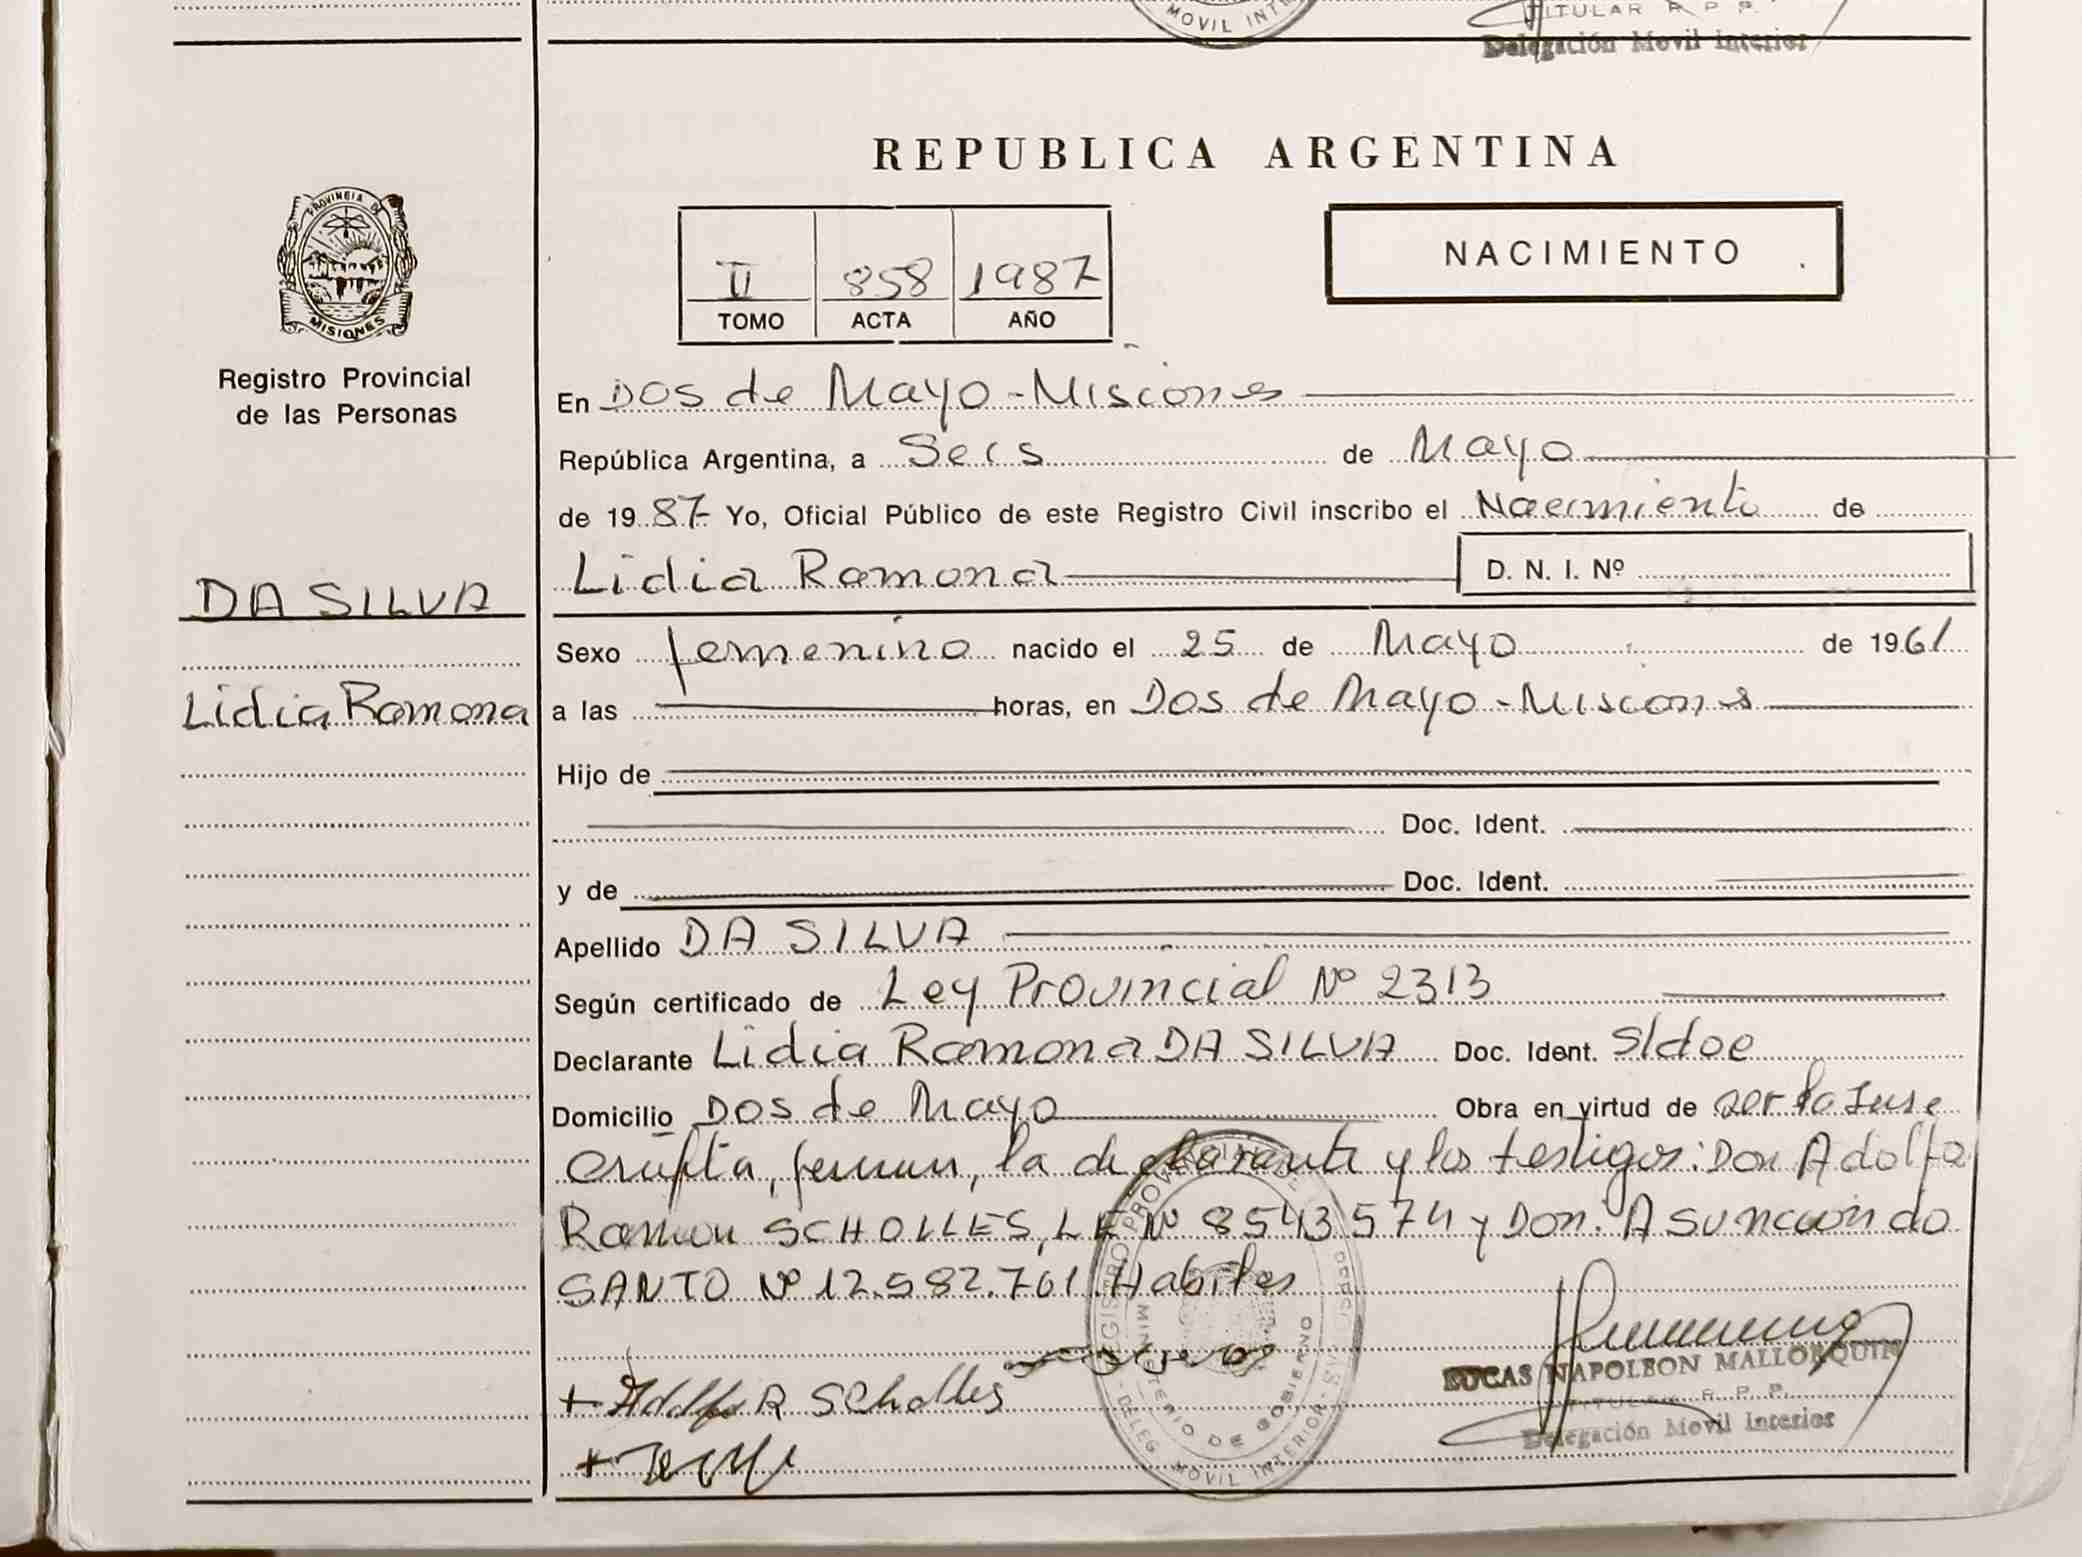 MOVIL INT
TITULAR R. P. P.
Delegación Movil Interior
REPUBLICA ARGENTINA
PROVINCIA DE
MISIONES
Registro Provincial
de las Personas
II 858 1987
TOMO ACTA AÑO
NACIMIENTO
En Dos de Mayo - Misiones
República Argentina, a Seis de Mayo
de 1987 Yo, Oficial Público de este Registro Civil inscribo el Nacimiento de
Lidia Ramona D. N. I. Nº
DA SILVA
Lidia Ramona
Sexo femenino nacido el 25 de Mayo de 1961
a las horas, en Dos de Mayo - Misiones
Hijo de
Doc. Ident.
y de Doc. Ident.
Apellido DA SILVA
Según certificado de Ley Provincial Nº 2313
Declarante Lidia Ramona DA SILVA Doc. Ident. S/doc
Domicilio Dos de Mayo Obra en virtud de ser la Ins
cripta, firman, la declarante y los testigos: Don Adolfo
Ramon SCHOLLES, LE Nº 8543574 y Don. Asuncion do
SANTO Nº 12.582.761. Habiles
+ Adolfo R Scholles
LUCAS NAPOLEON MALLORQUIN
TITULAR R. P. P.
Delegación Movil Interior
MINISTERIO DE GOBIERNO
DELEG MOVIL INTERIOR